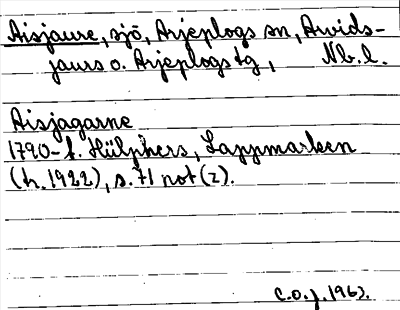 Aisjaure, sjö, Arjeplogs sn, Arvids-
jaurs o. Arjeplogs tg, Nb.l.
Aisjagarne
1790- f. Hülphers, Lappmarken
(tr. 1922), s. 71 not (z).
C.O.J. 1963.